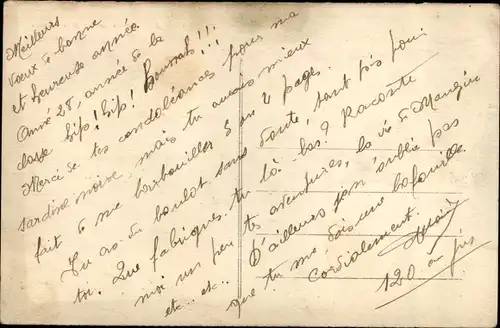 Meilleurs
vœux de bonne
et heureuse année
Année 28, année de la
classe hip! hip! Hourrah!!!
Merci de tes condoléances pour ma
sardine noire, mais tu aurais mieux
fait de me barbouiller 3 ou 4 pages.
Tu as du boulot sans doute, tant pis pour
toi. Que fabriques-tu là-bas? Raconte
moi un peu tes aventures, la vie de Mangin
etc.. etc.. D'ailleurs j'en oublie pas
que tu me dois une bafouille.
Cordialement.
120 au jus